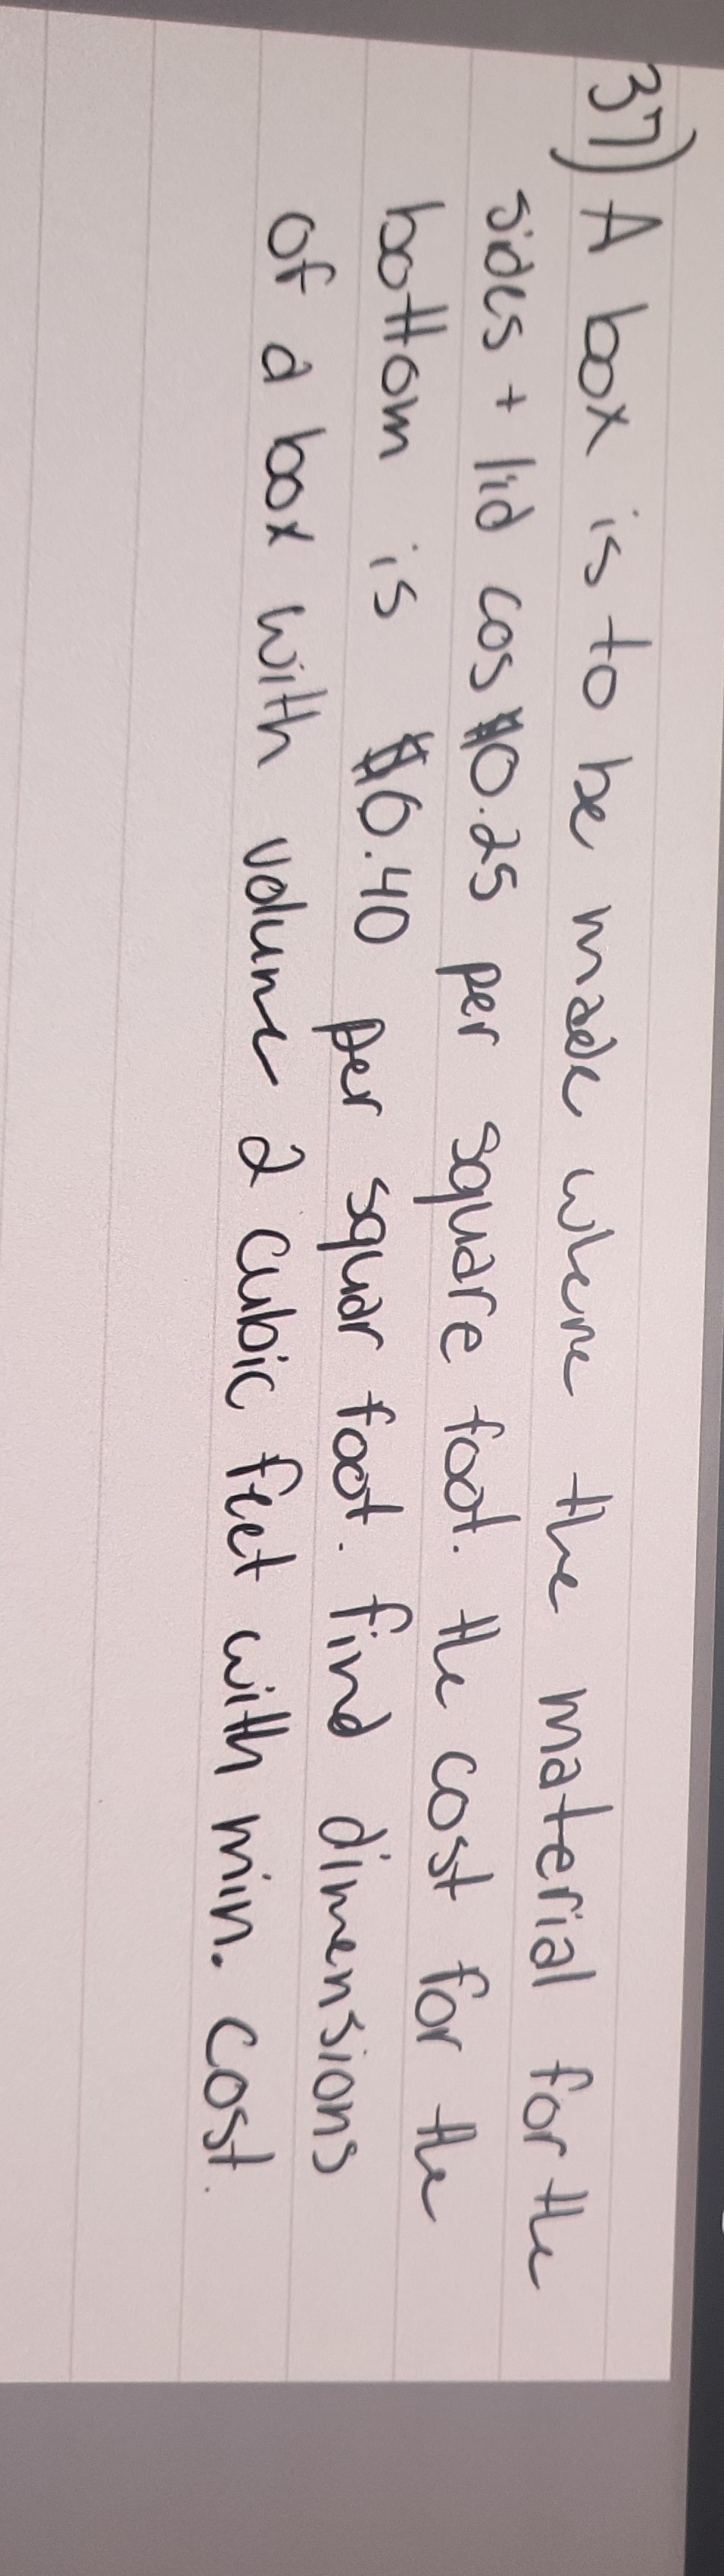 37) A box is to be made where the material for the
sides + lid cos $0.25 per square foot. the cost for the
bottom is $0.40 per squar foot. find dimensions
of a box with volume 2 cubic feet with min. cost.